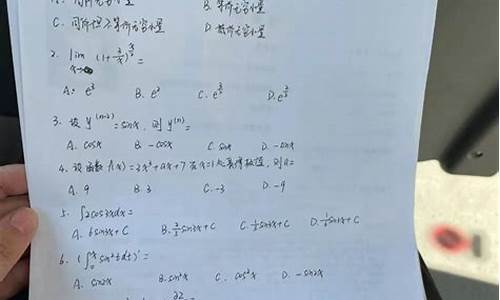 A. 同阶无穷小量 B. 等阶无穷小量
C. 同阶但不等阶无穷小量 D.
2. lim (1+
A. B. C. D.
3. 设 y⁽ⁿ⁻²⁾ = sinx, 则 y⁽ⁿ⁾ =
A. cosx B. -cosx C. sinx D. -sinx
4. 设函数 f(x) = 2x³+ax+7 在 x=1 处取得极值, 则a=
A. 9 B. 3 C. -3 D. -9
5. ∫2cos3xdx =
A. 6sin3x+C B. 2/3 sin3x+C C. 1/3 sin3x+C D. sin3x+C
6. (∫₀ˣ sin²tdt)' =
A. sin2x B. sin²x C. cos²x D. -sin2x